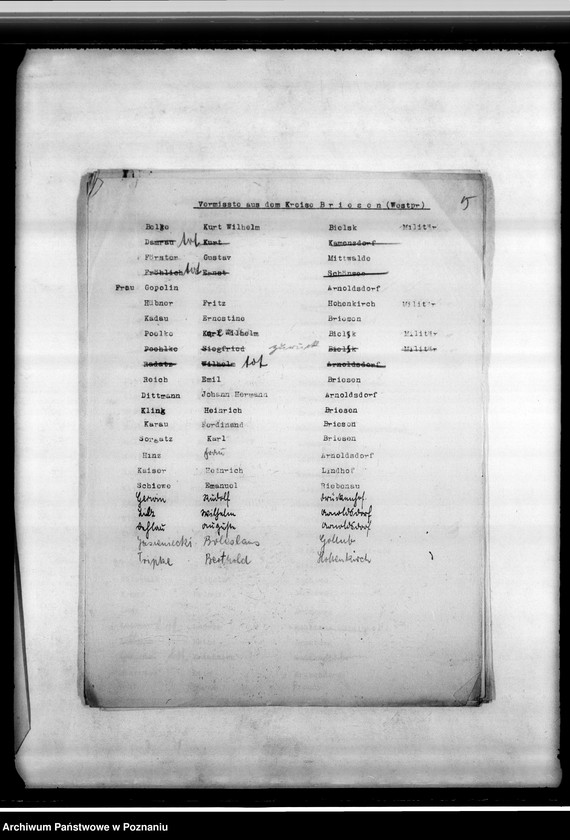 5
Vermisste aus dem Kreise Briesen (Westpr)
Belke Kurt Wilhelm Bielsk Militär
Damrau tot Kurt Kamensdorf
Förster Gustav Mittwalde
Fröhlich tot Ernst Schönsee
Frau Gopelin Arnoldsdorf
Hübner Fritz Hohenkirch Militär
Kadau Ernestine Briesen
Poelke Karl Wilhelm Bielsk Militär
Poehlke Siegfried zurück Bielsk Militär
Wilhelm tot Arnoldsdorf
Reich Emil Briesen
Dittmann Johann Hermann Arnoldsdorf
Kling Heinrich Briesen
Karau Ferdinand Briesen
Sorgatz Karl Briesen
Hinz Frau Arnoldsdorf
Kaiser Heinrich Lindhof
Schiewe Emanuel Riebenau
Rudolf
Wilhelm Arnoldsdorf
Auguste Arnoldsdorf
Jasieniecki Boleslaus Gollub
Tripke Berthold Hohenkirch
Archiwum Państwowe w Poznaniu